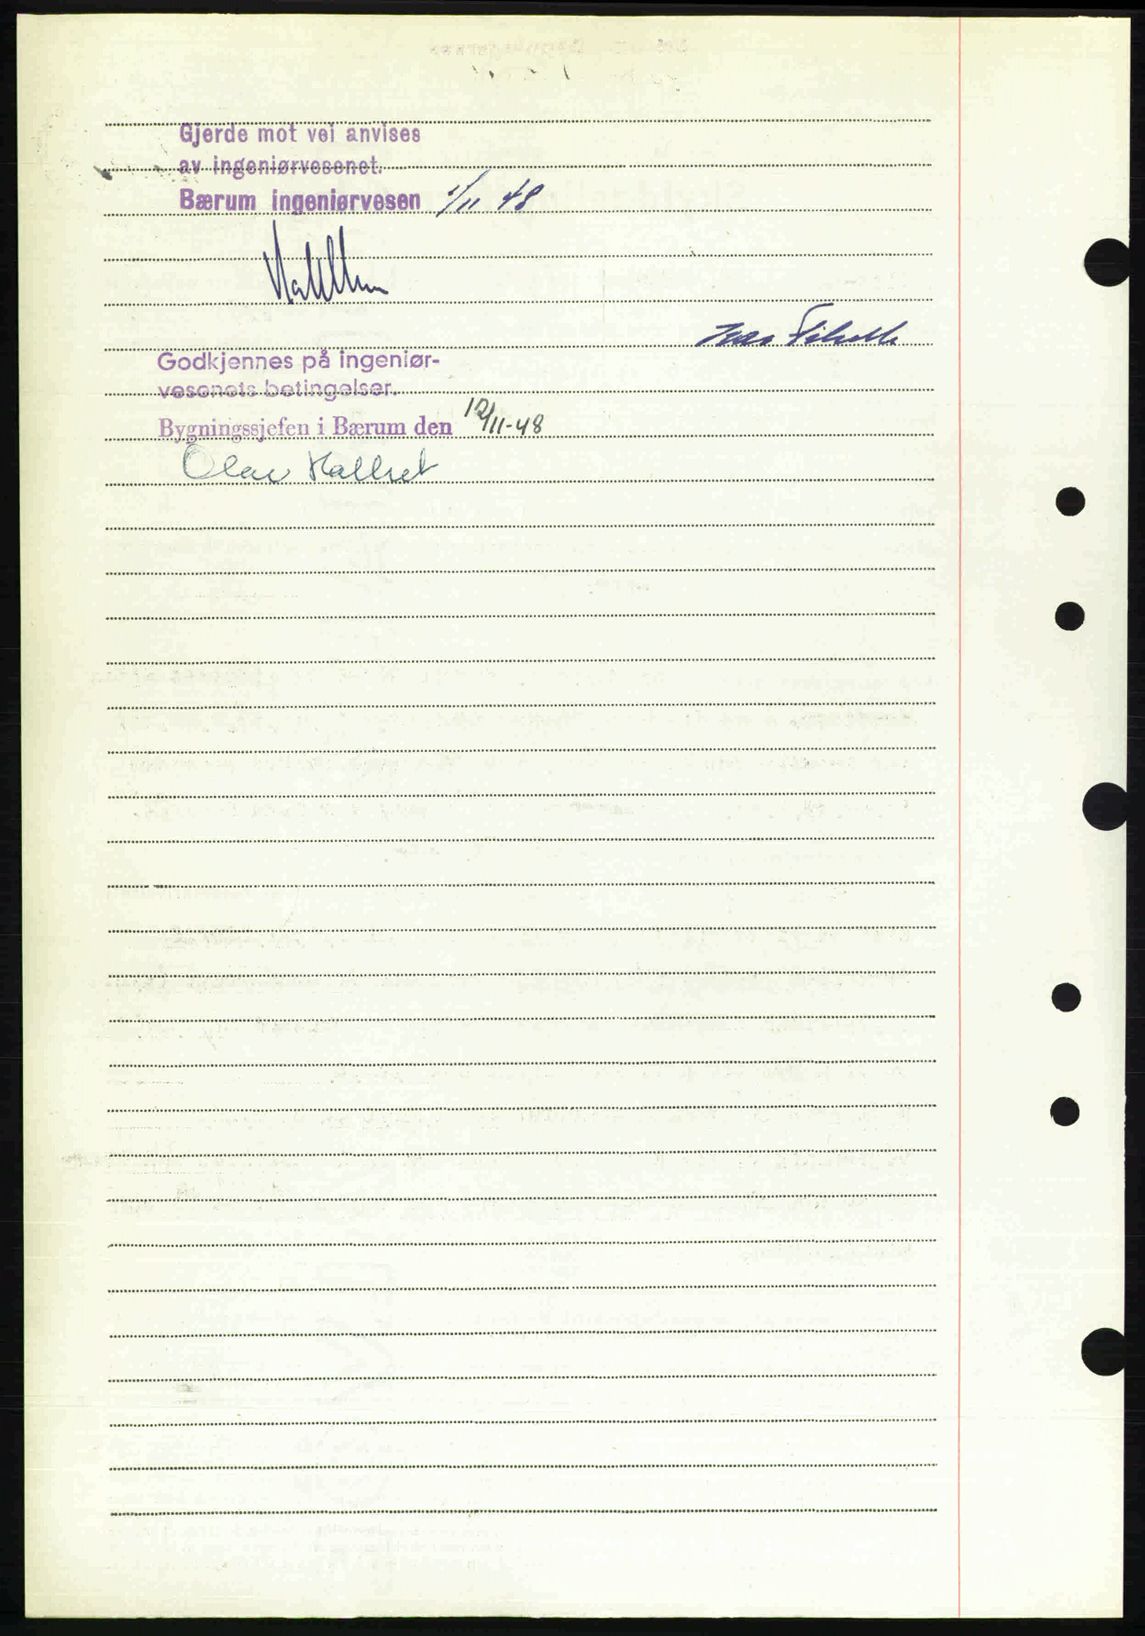 Gjerde mot vei anvises
av ingeniørvesenet.
Bærum ingeniørvesen 1/11 48
Godkjennes på ingeniør-
vesenets betingelser.
Bygningssjefen i Bærum den 12/11-48
Olav Hallset